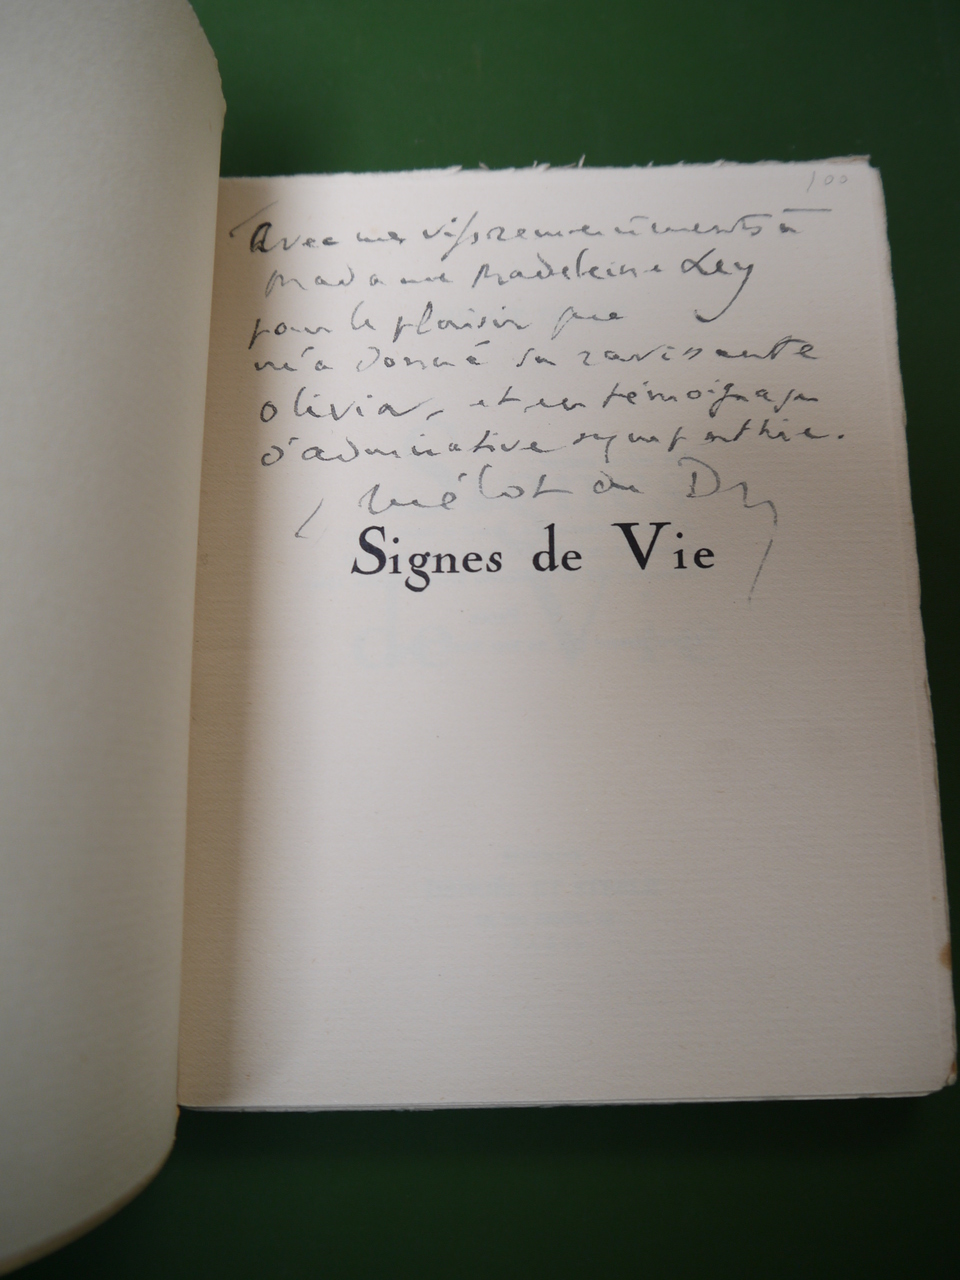 100
Avec mes vifs remerciements à
Madame Madeleine Ley
pour le plaisir que
m'a donné sa ravissante
Olivia, et en témoignage
d'admirative sympathie.
Mélot du Dy
Signes de Vie